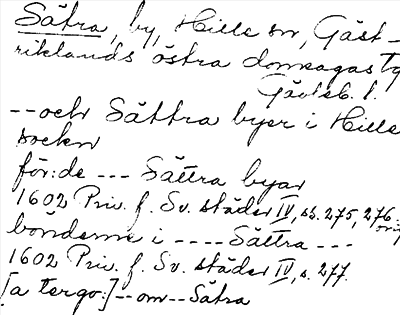 Sätra, by, Hille sn, Gäst-
riklands östra domsagas tg
Gävleb. l.
--och Sättra byer i Hille
socken
för:de --- Sättra byar
1602 Priv. f. Sv. städer IV, ss. 275, 276.
bönderne i ---- Sättra ---
1602 Priv. f. Sv. städer IV, s. 277.
[a tergo:]--om--Sätra